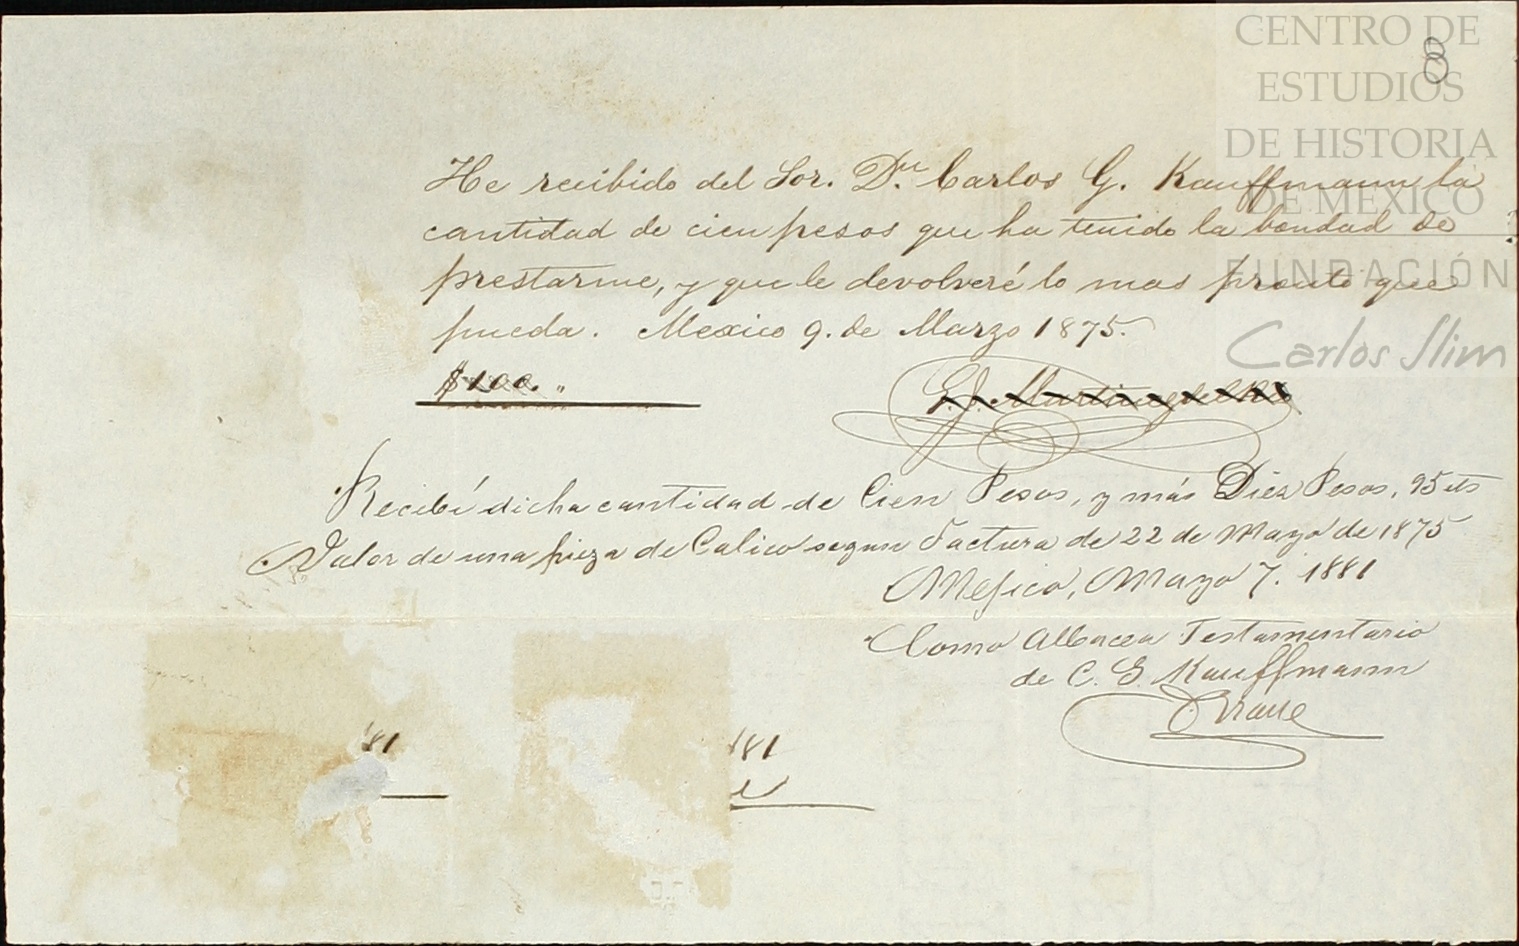 CENTRO DE
ESTUDIOS
DE HISTORIA
DE MÉXICO
FUNDACIÓN
Carlos Slim
8
He recibido del Sor. Dn. Carlos G. Kauffmann la
cantidad de cien pesos que ha tenido la bondad de
prestarme, y que le devolveré lo mas pronto que
pueda. Mexico 9. de Marzo 1875.
$100. „
G. J. Martinez del Rio
Recibí dicha cantidad de Cien Pesos, y más Diez Pesos, 95 cts
Valor de una pieza de Calico segun Factura de 22 de Mayo de 1875
Mejico, Mayo 7. 1881
Como Albacea Testamentario
de C. G. Kauffmann
81
181